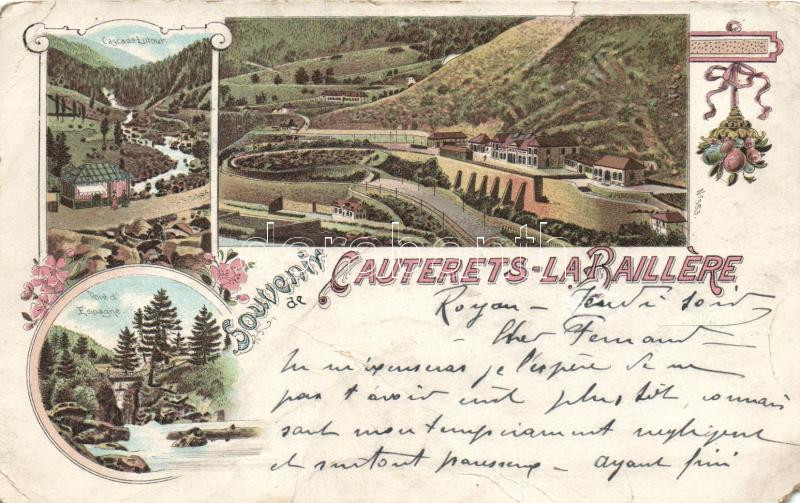 Cascade Lutour
Nº 553.
Pont d'
Espagne
Souvenir
de
CAUTERETS-LA RAILLÈRE
darabanth
Royan - Jeudi soir
Cher Fernand
Tu m'excuseras je l'espère de ne
pas t'avoir écrit plus tôt, connais
sant mon tempérament négligent
et surtout paresseux - ayant fini